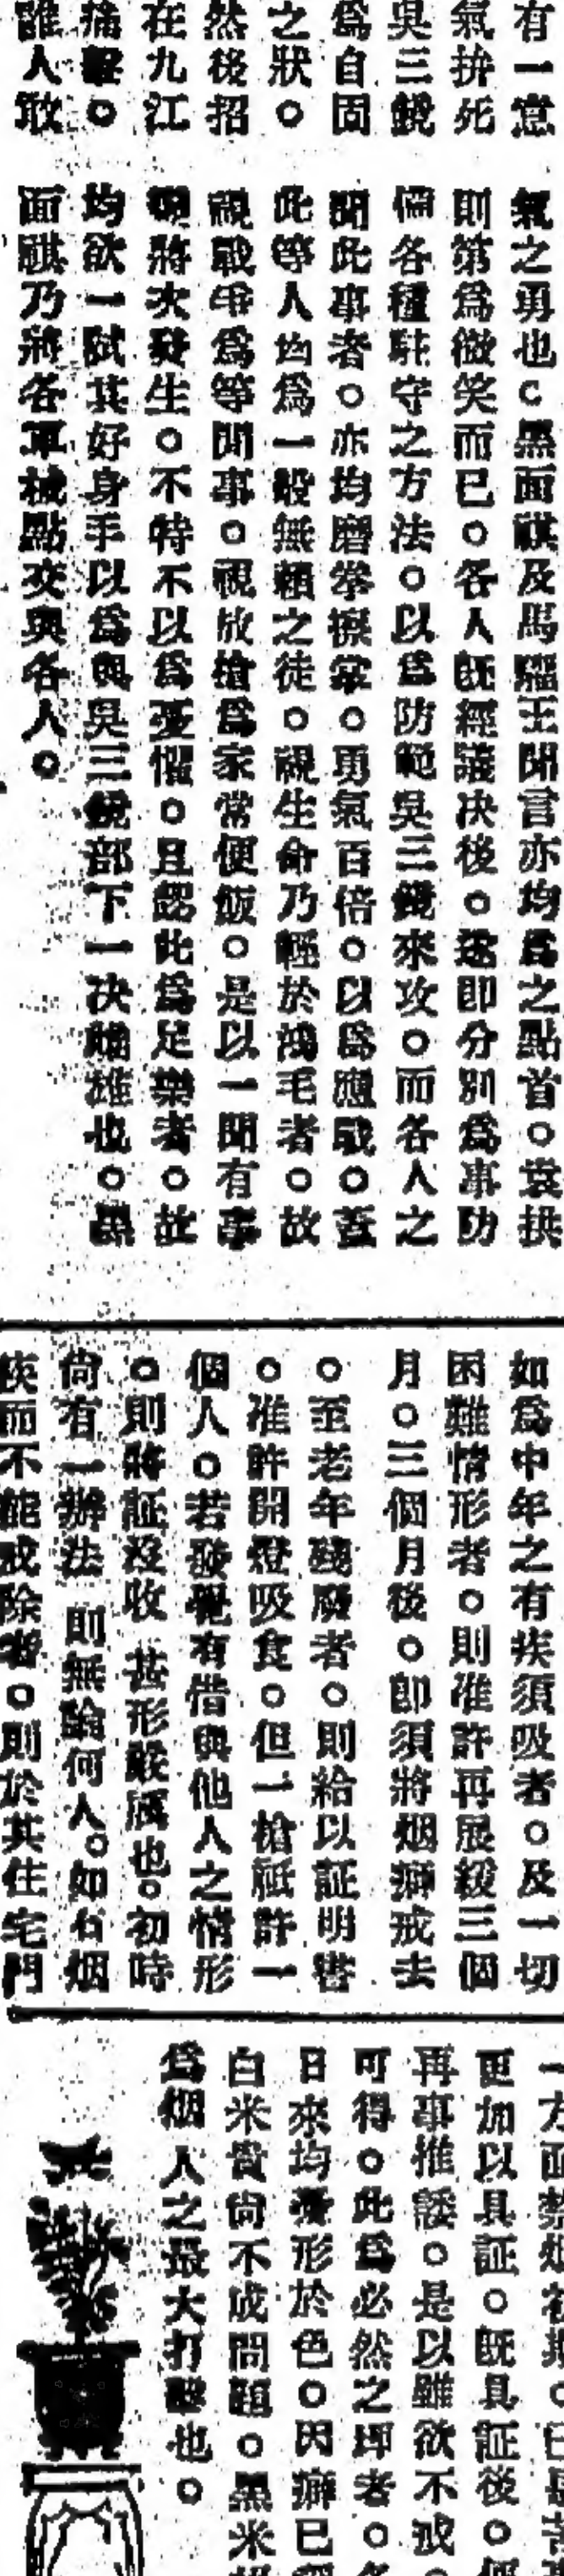 有一意
氣拚死
吳三鏡
為自固
之狀。
然後招
在九江
痛擊。
誰人敢
氣之勇也。黑面祺及馬騮王聞言亦均為之點首。袁拱
則第為微笑而已。各人既經議决後。遂即分別為事防
備各種駐守之方法。以為防範吳三鏡來攻。而各人之
聞此事者。亦均磨拳擦掌。勇氣百倍。以為應戰。蓋
此等人均為一般無賴之徒。視生命乃輕於鴻毛者。故
視戰爭為等閒事。視放槍為家常便飯。是以一聞有事
將次發生。不特不以為憂懼。且認此為足樂者。故
均欲一試其好身手以為與吳三鏡部下一决雌雄也。黑
面祺乃將各軍械點交與各人。
如為中年之有疾須吸者。及一切
困難情形者。則准許再展緩三個
月。三個月後。即須將烟癮戒去
。至老年殘廢者。則給以証明書
。准許開燈吸食。但一槍祗許一
個人。若發覺有借與他人之情形
。則將証沒收 甚形嚴厲也。初時
尚有一辦法 則無論何人。如有烟
疾而不能戒除者。則於其住宅門
一方面禁烟初期。已
更加以具証。既具証後。
再事推諉。是以雖欲不戒。
可得。此為必然之理者。
日來均憂形於色。因癖已
白米貴尚不成問題。黑米
為烟人之最大打擊也。